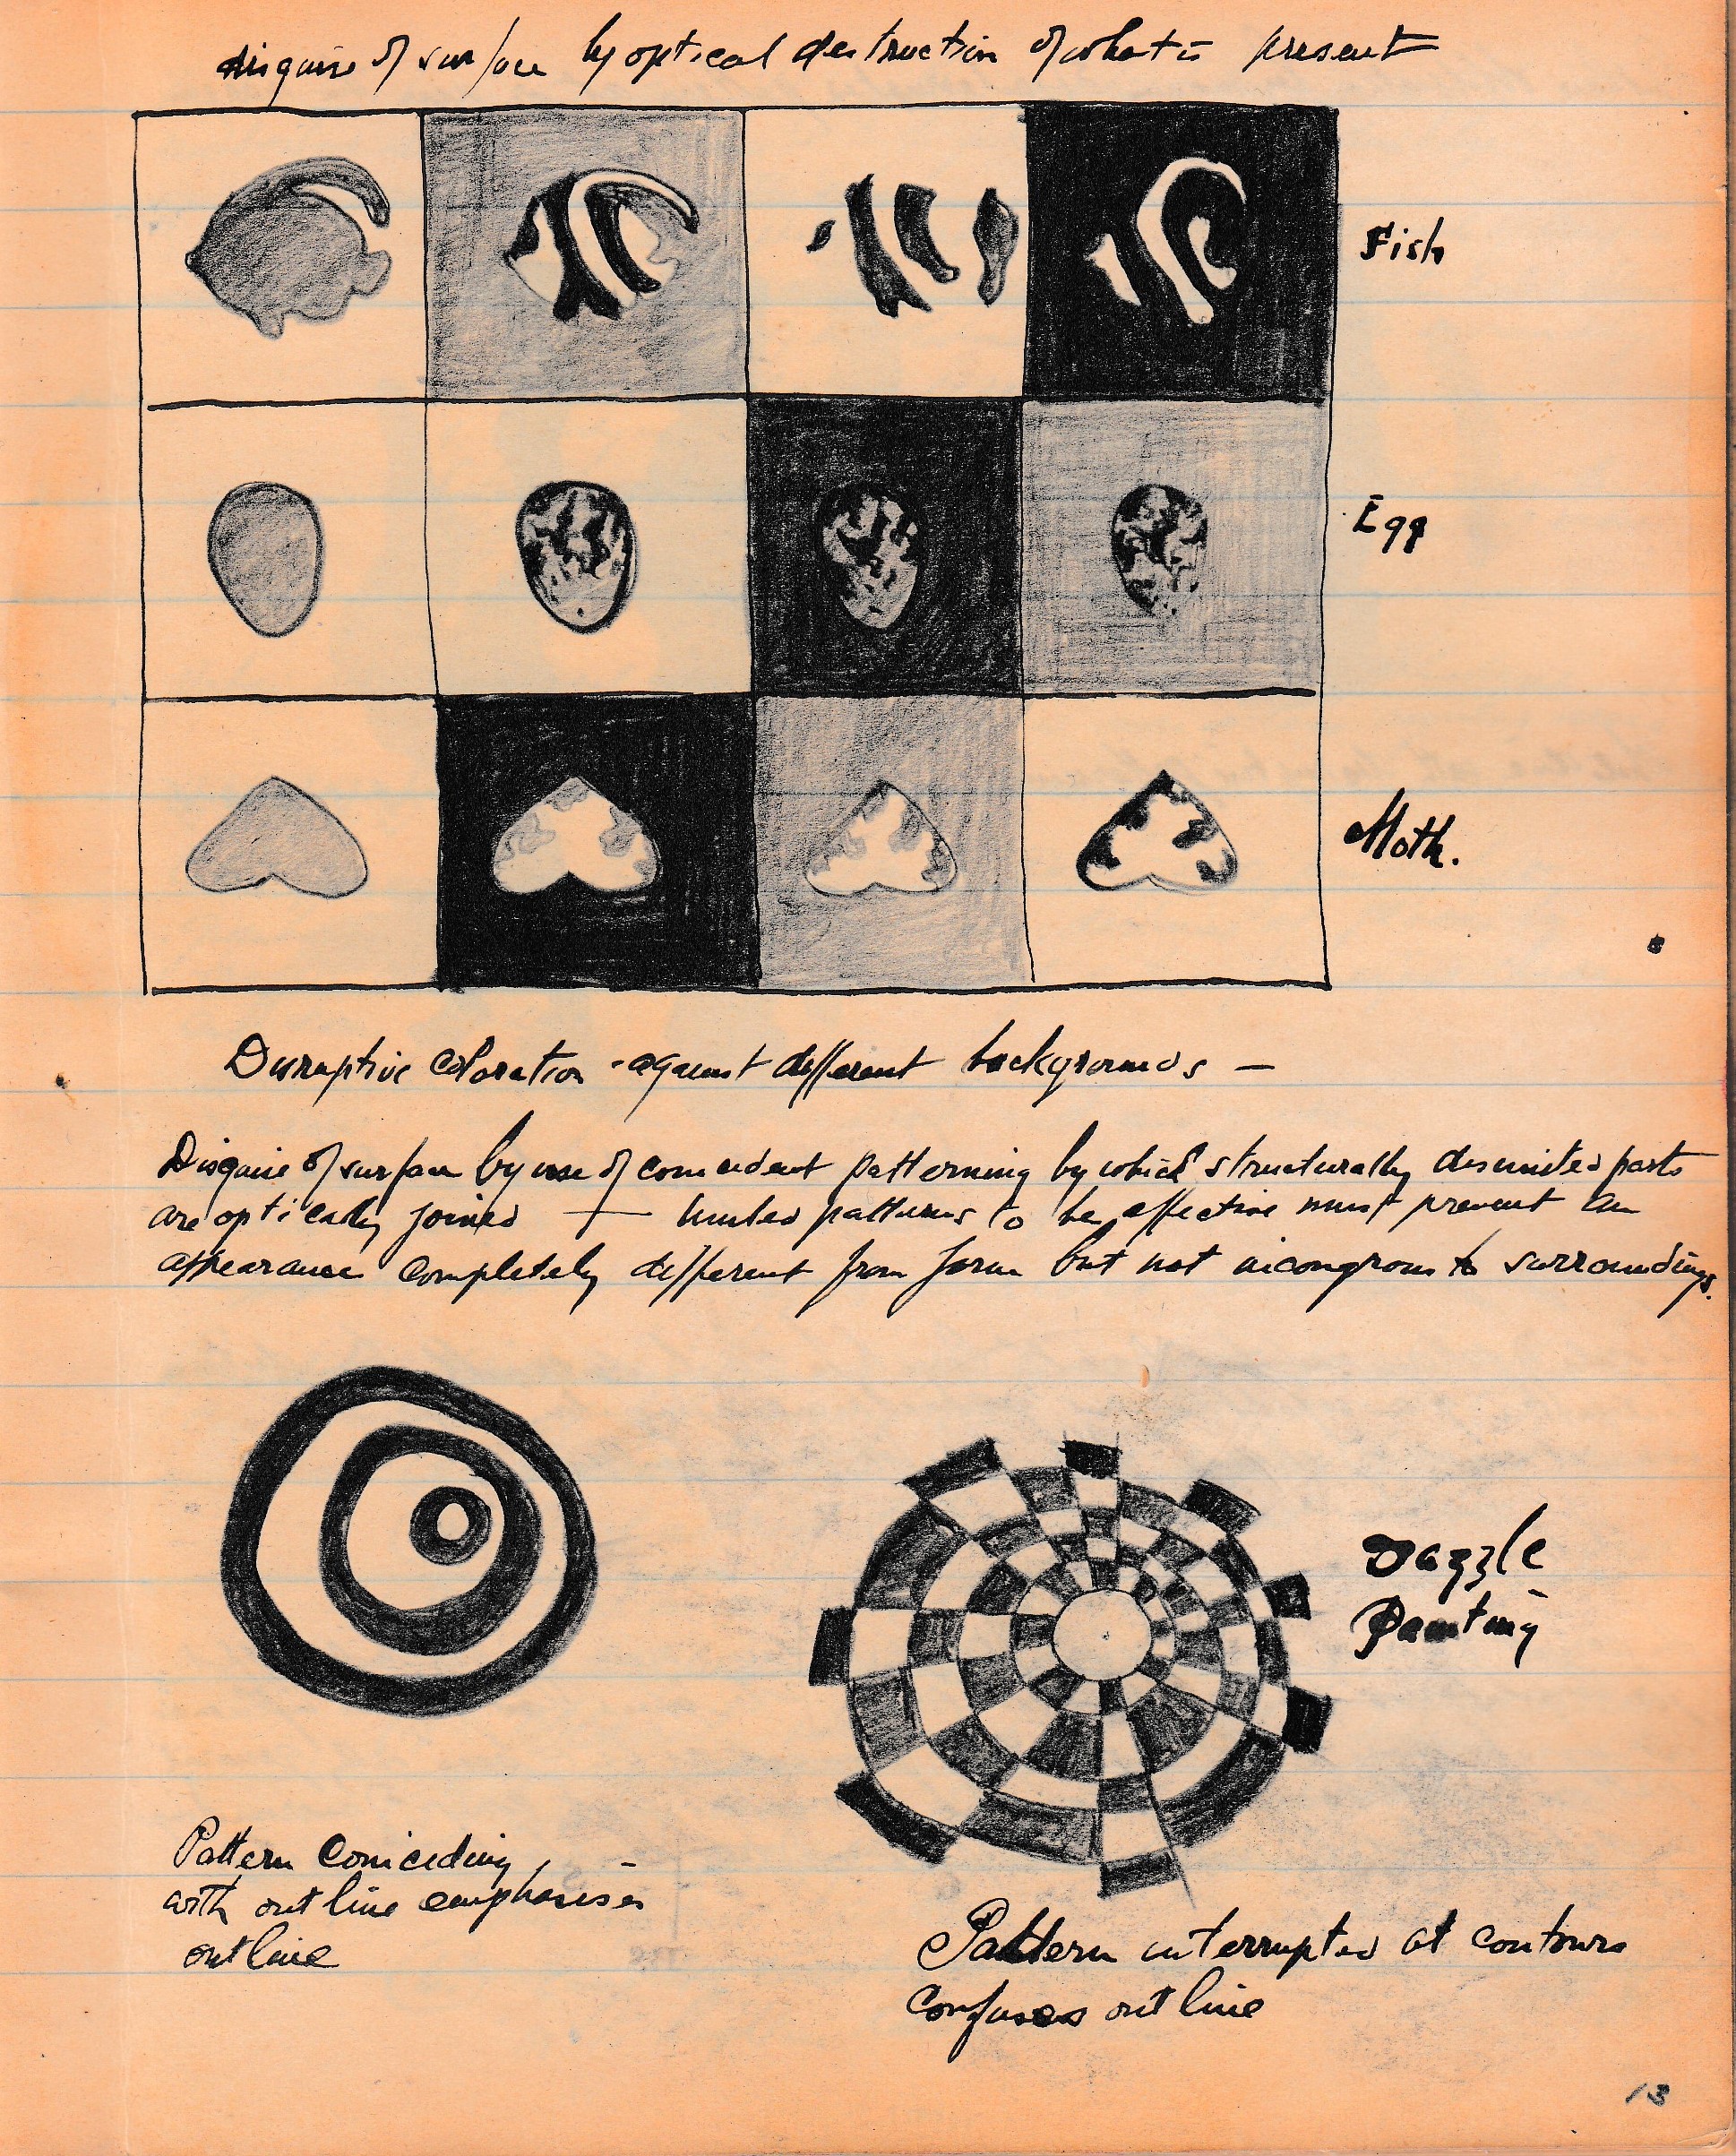 disguise of surface by optical destruction of what is present
Fish
Egg
Moth.
Disruptive coloration - against different backgrounds —
Disguise of surface by use of coincident patterning by which structurally disunited parts
are optically joined — patterns to be effective must present an
appearance completely different from form but not incongrous to surroundings.
Dazzle
Painting
Pattern coinciding
with outline emphasises
outline
Pattern interrupted at contours
confuses outline
13